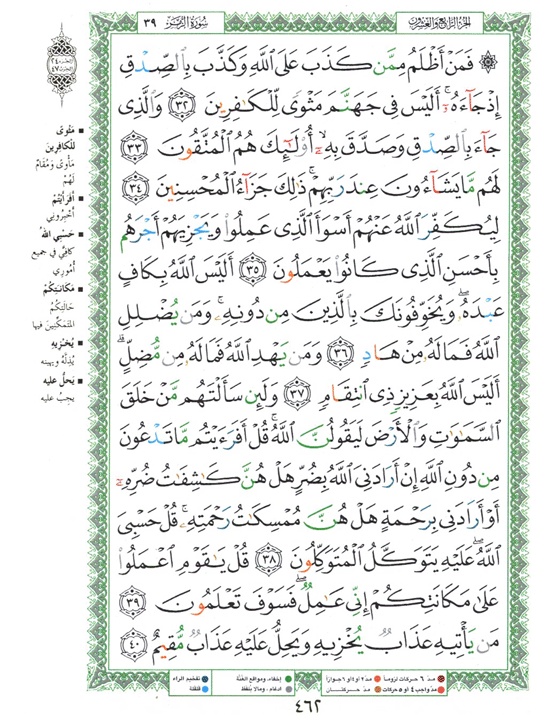 الجزء الرابع والعشرون
سورة الزمر ٣٩
۞ فَمَنْ أَظْلَمُ مِمَّن كَذَبَ عَلَى ٱللَّهِ وَكَذَّبَ بِٱلصِّدْقِ
إِذْ جَآءَهُۥٓ ۚ أَلَيْسَ فِى جَهَنَّمَ مَثْوًى لِّلْكَـٰفِرِينَ ٣٢ وَٱلَّذِى
جَآءَ بِٱلصِّدْقِ وَصَدَّقَ بِهِۦٓ ۙ أُو۟لَـٰٓئِكَ هُمُ ٱلْمُتَّقُونَ ٣٣
لَهُم مَّا يَشَآءُونَ عِندَ رَبِّهِمْ ۚ ذَٰلِكَ جَزَآءُ ٱلْمُحْسِنِينَ ٣٤
لِيُكَفِّرَ ٱللَّهُ عَنْهُمْ أَسْوَأَ ٱلَّذِى عَمِلُوا۟ وَيَجْزِيَهُمْ أَجْرَهُم
بِأَحْسَنِ ٱلَّذِى كَانُوا۟ يَعْمَلُونَ ٣٥ أَلَيْسَ ٱللَّهُ بِكَافٍ
عَبْدَهُۥ ۖ وَيُخَوِّفُونَكَ بِٱلَّذِينَ مِن دُونِهِۦ ۚ وَمَن يُضْلِلِ
ٱللَّهُ فَمَا لَهُۥ مِنْ هَادٍ ٣٦ وَمَن يَهْدِ ٱللَّهُ فَمَا لَهُۥ مِن مُّضِلٍّ ۗ
أَلَيْسَ ٱللَّهُ بِعَزِيزٍ ذِى ٱنتِقَامٍ ٣٧ وَلَئِن سَأَلْتَهُم مَّنْ خَلَقَ
ٱلسَّمَـٰوَٰتِ وَٱلْأَرْضَ لَيَقُولُنَّ ٱللَّهُ ۚ قُلْ أَفَرَءَيْتُم مَّا تَدْعُونَ
مِن دُونِ ٱللَّهِ إِنْ أَرَادَنِىَ ٱللَّهُ بِضُرٍّ هَلْ هُنَّ كَـٰشِفَـٰتُ ضُرِّهِۦٓ
أَوْ أَرَادَنِى بِرَحْمَةٍ هَلْ هُنَّ مُمْسِكَـٰتُ رَحْمَتِهِۦ ۚ قُلْ حَسْبِىَ
ٱللَّهُ ۖ عَلَيْهِ يَتَوَكَّلُ ٱلْمُتَوَكِّلُونَ ٣٨ قُلْ يَـٰقَوْمِ ٱعْمَلُوا۟
عَلَىٰ مَكَانَتِكُمْ إِنِّى عَـٰمِلٌ ۖ فَسَوْفَ تَعْلَمُونَ ٣٩
مَن يَأْتِيهِ عَذَابٌ يُخْزِيهِ وَيَحِلُّ عَلَيْهِ عَذَابٌ مُّقِيمٌ ٤٠
■ مَثْوًى
لِلْكافِرينَ
مَأوًى وَمُقامٌ
لَهُمْ
■ أَفَرَأَيْتُمْ
أَخْبِرُوني
■ حَسْبِيَ اللهُ
كافِيَّ في جميع
أُمُوري
■ مَكانَتِكُمْ
حالَتِكُم
المُتَمَكِّنين فيها
■ يُخْزِيهِ
يُذِلُّه ويهينه
■ يَحِلُّ عليه
يجبُ عليه
مدّ ٦ حركات لزوماً مدّ ٢ او ٤ او ٦ جوازاً
مدّ واجب ٤ او ٥ حركات مدّ حركتان
إخفاء، ومواقع الغُنَّة
ادغام، ومالا يُلفَظ
تفخيم الراء
قلقلة
٤٦٢